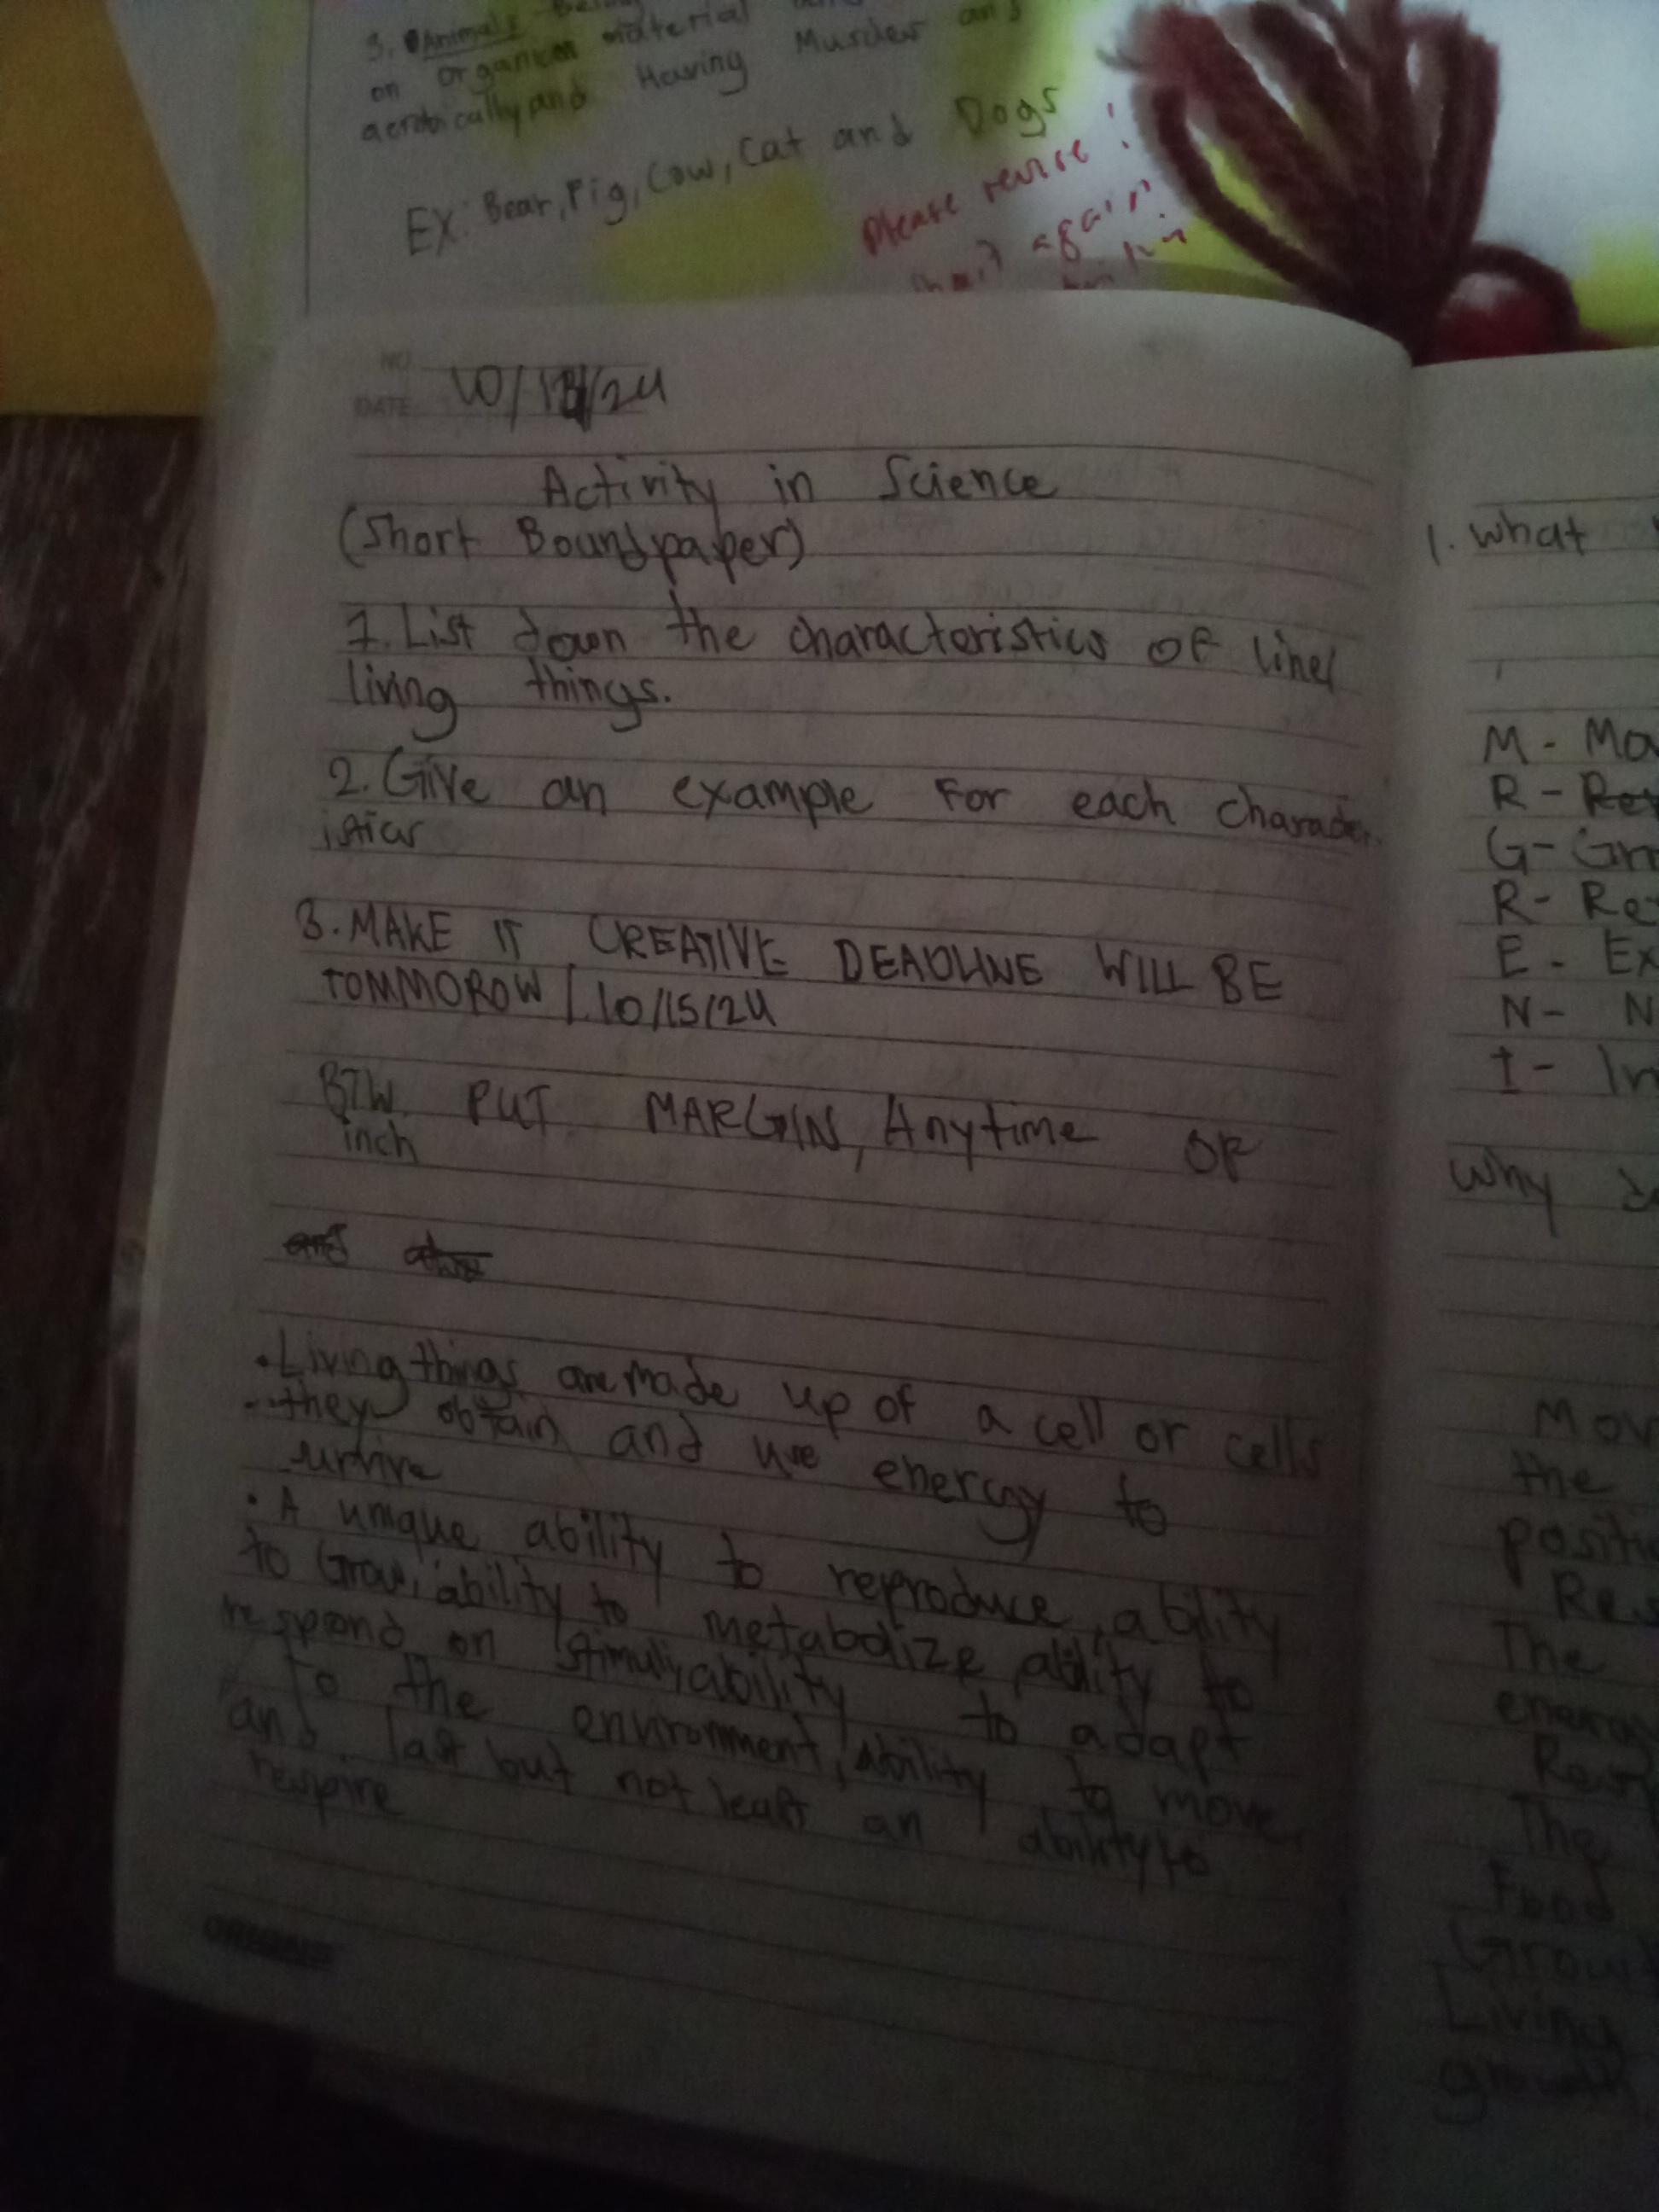 3. Animals
on organism material
aerobically and Having Muscles and
EX: Bear, Pig, Cow, Cat and Dogs
Please revise!
again
NO.
DATE: 10/14/24
Activity in Science
(Short Boundpaper)
1. List down the characteristics of
living things.
2. Give an example For each character
istics
3. MAKE IT CREATIVE DEADLINE WILL BE
TOMMOROW | 10/15/24
BTW PUT MARGIN, Anytime OF
inch
• Living things are made up of a cell or cells
• they obtain and use energy to
survive
• A unique ability to reproduce, ability
to Grow, ability to metabolize ability to
respond on stimuli, ability to adapt
to the environment, ability to move
and last but not least an ability to
respire
ORIGINS
1. What
M - Mo
R -
G - Gr
R - Re
E - Ex
N - N
I - In
Why
Mov
the
positi
Res
The
energy
Res
The
Food
Growt
Living
growth